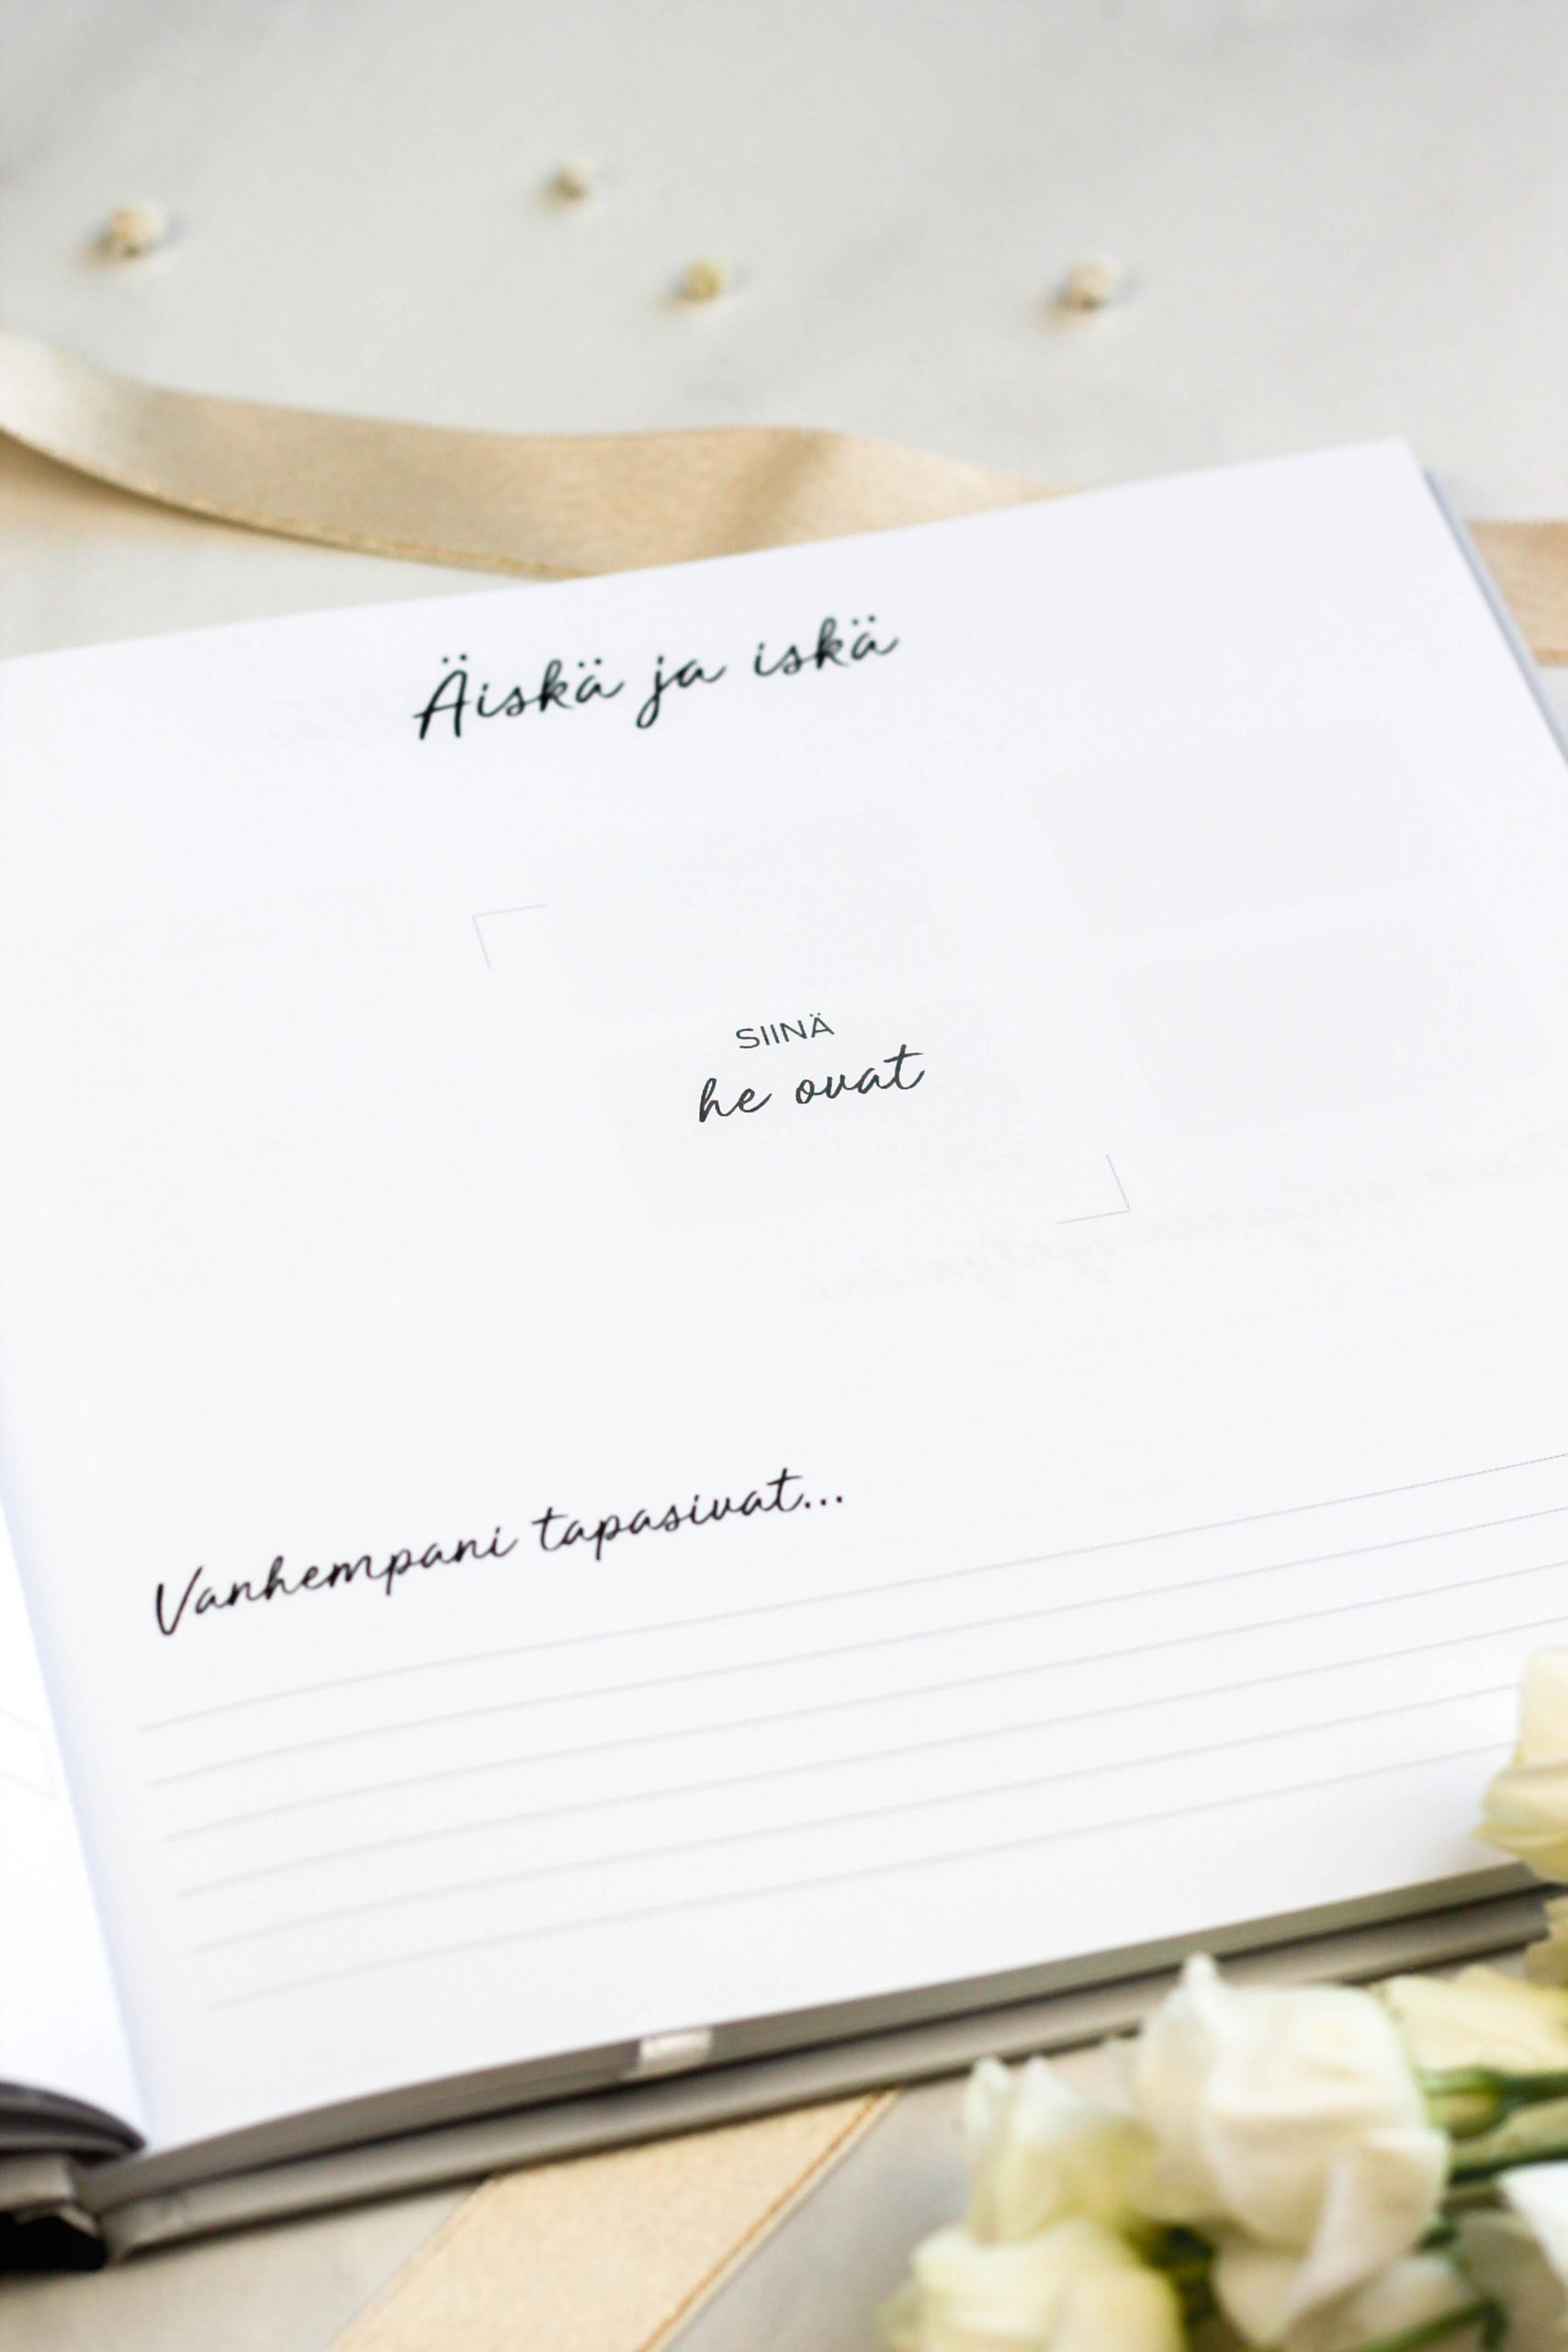 Äiskä ja iskä
SIINÄ
he ovat
Vanhempani tapasivat...